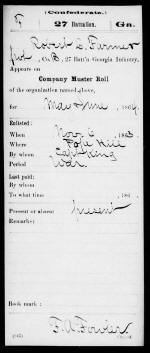 (Confederate.)
F 27 Battalion. Ga.
Robert L. Farmer
Pvt, Co. B, 27 Batt'n Georgia Infantry.
Appears on
Company Muster Roll
of the organization named above,
for May & June, 1864.
Enlisted:
When Nov 6, 1863.
Where Pope Hill
By whom Capt King
Period War
Last paid:
By whom
To what time , 186 .
Present or absent Present
Remarks:
Book mark:
F. A. Fowler